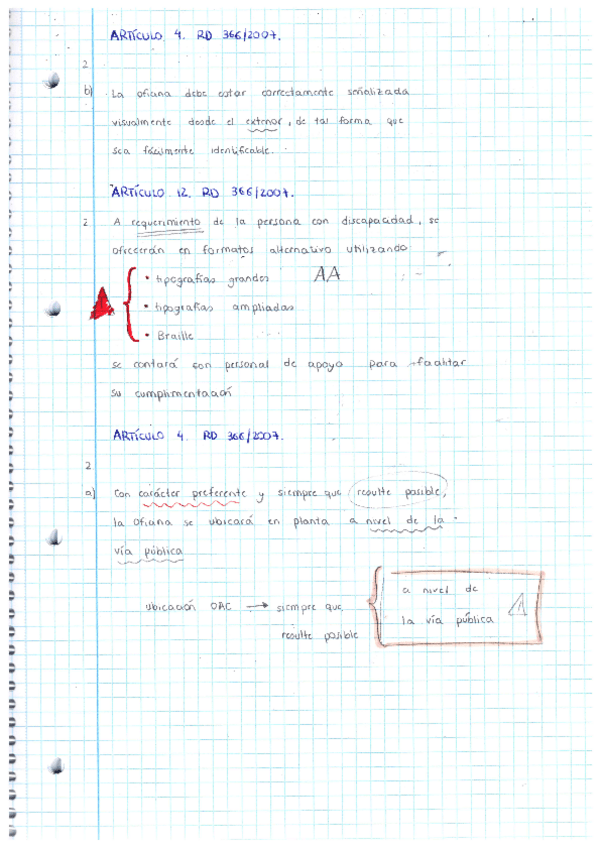 ARTÍCULO 4. RD 366/2007.
2
b) La oficina debe estar correctamente señalizada
visualmente desde el exterior, de tal forma que
sea fácilmente identificable.
ARTÍCULO 12. RD 366/2007.
2 A requerimiento de la persona con discapacidad, se
ofrecerán en formatos alternativo utilizando
• tipografías grandes AA
• tipografías ampliadas
• Braille
se contará con personal de apoyo para facilitar
su cumplimentación
ARTÍCULO 4. RD 366/2007.
2
a) Con carácter preferente y siempre que resulte posible,
la oficina se ubicará en planta a nivel de la
vía pública
ubicación OAC → siempre que
resulte posible
a nivel de
la vía pública